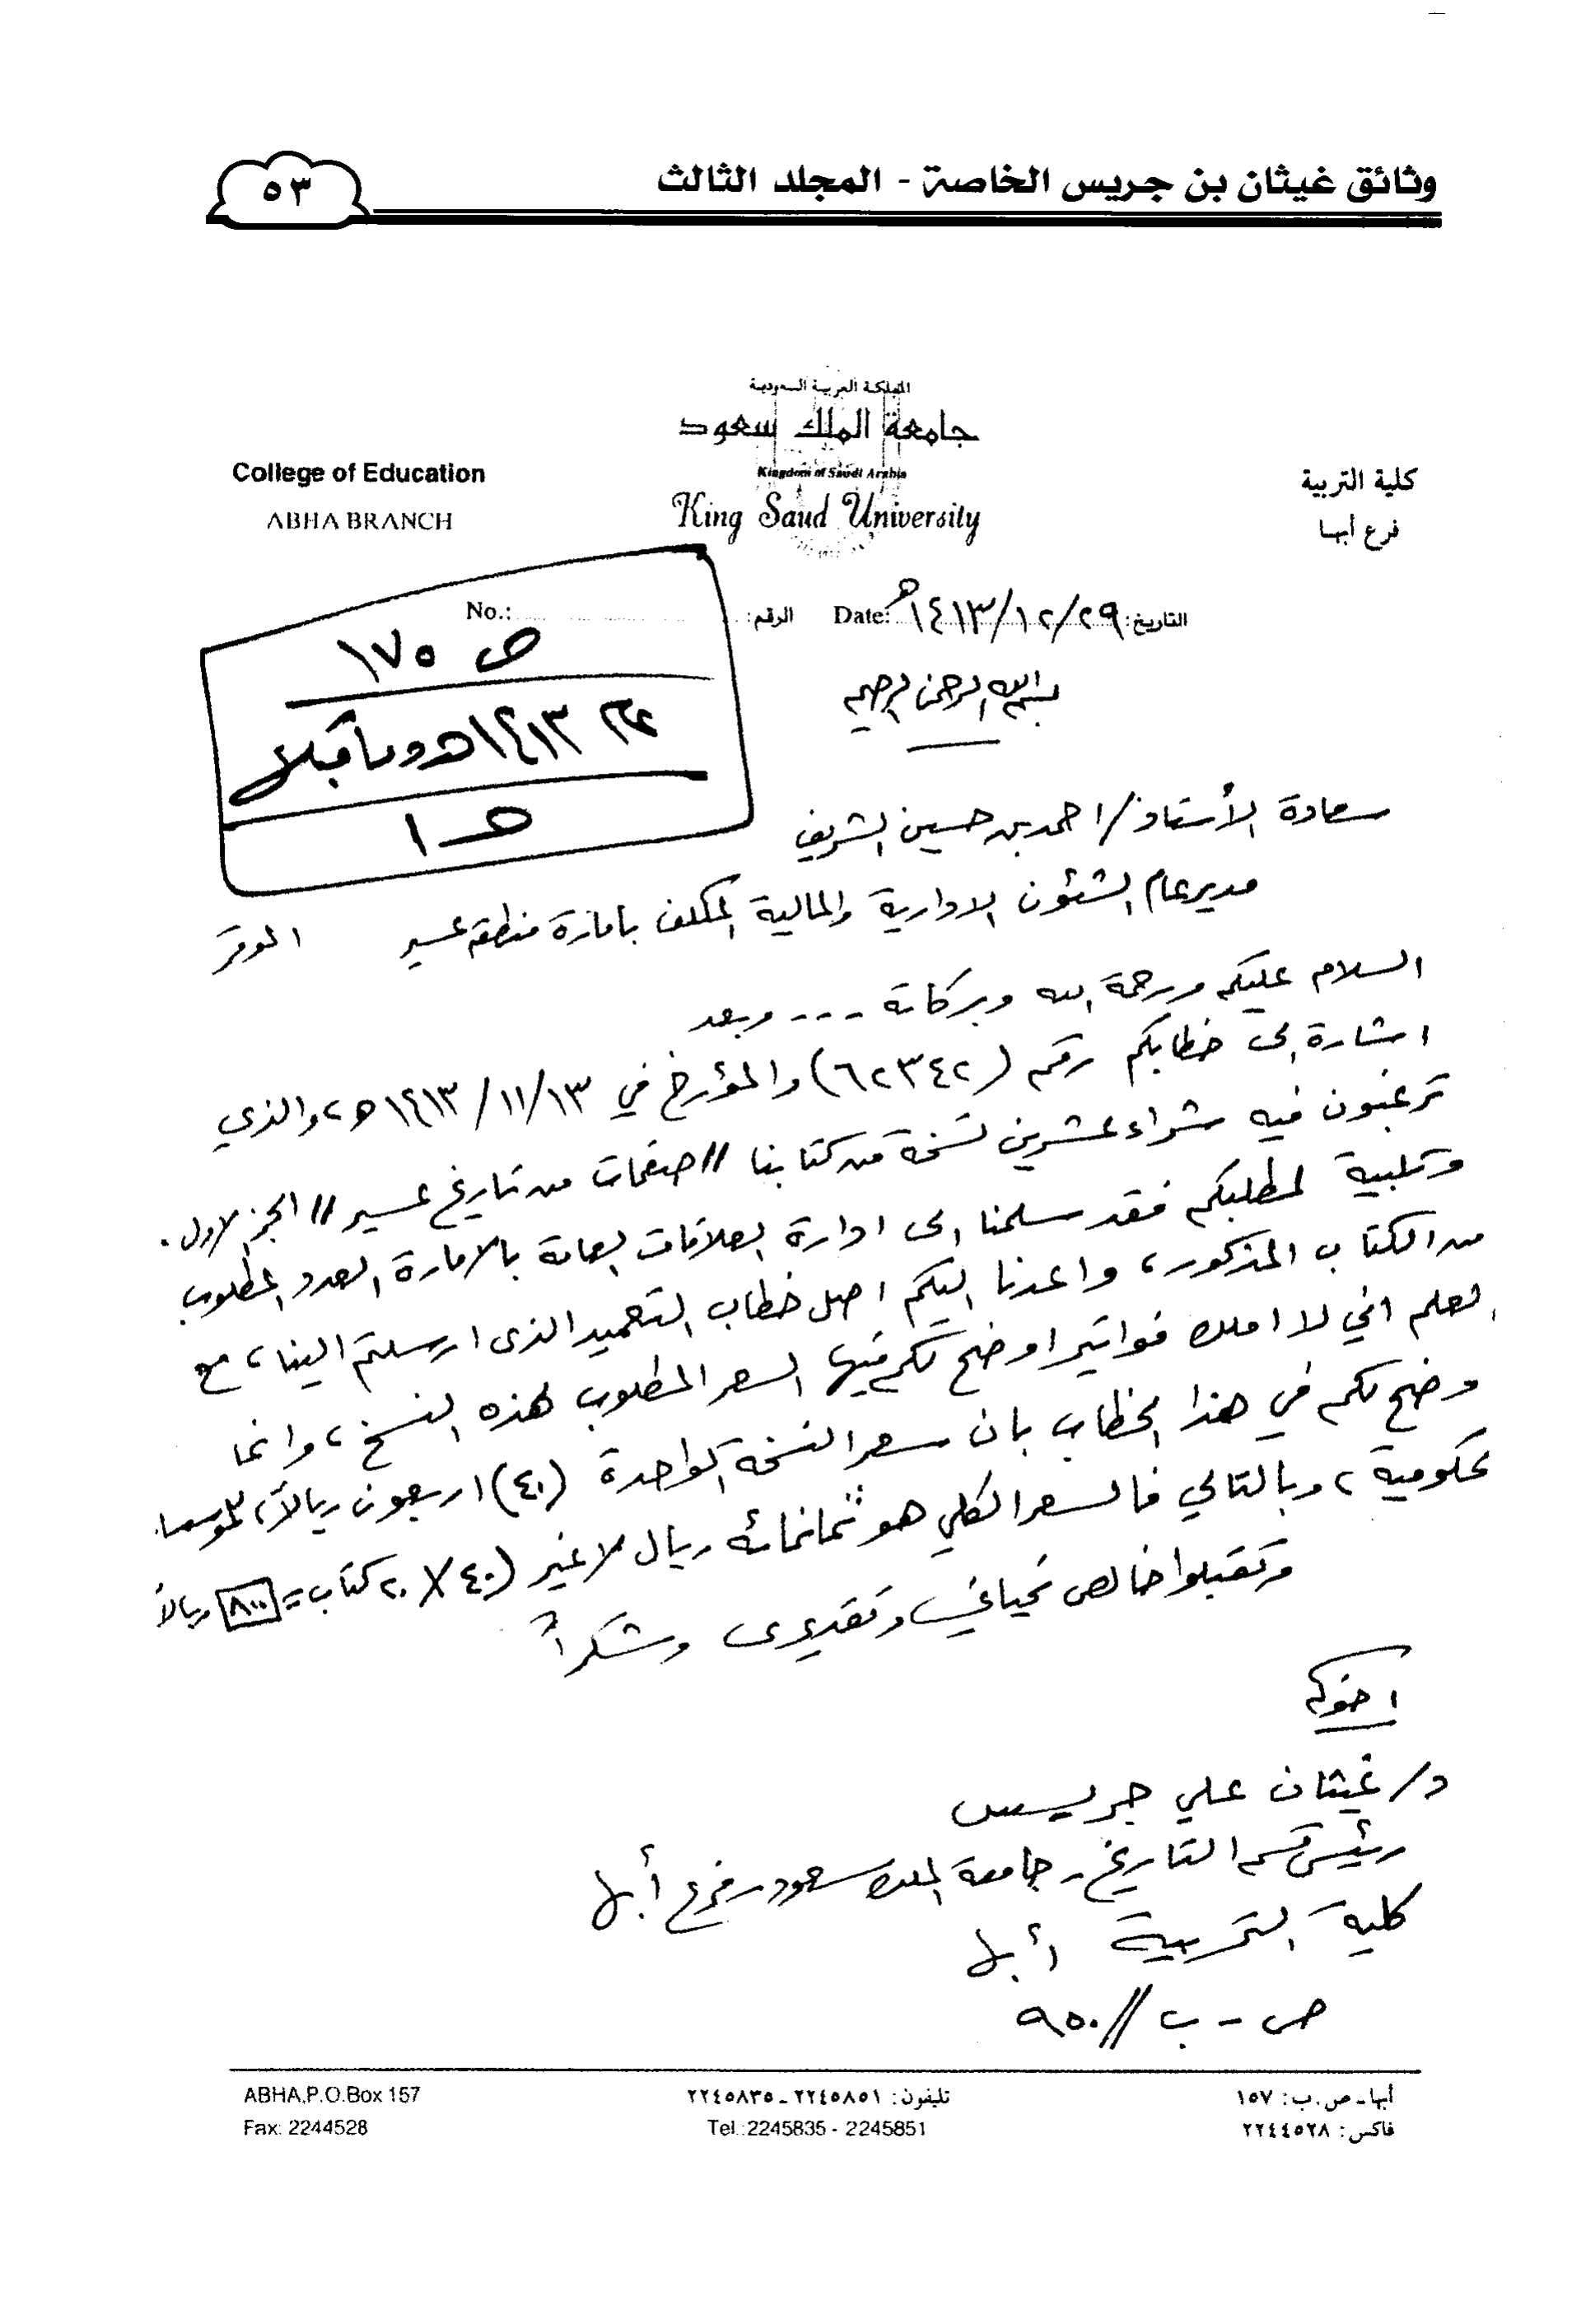 وثائق غيثان بن جريس الخاصة - المجلد الثالث
٥٣
المملكة العربية السعودية
جامعة الملك سعود
Kingdom of Saudi Arabia
King Saud University
كلية التربية
فرع أبها
College of Education
ABHA BRANCH
التاريخ: ١٤١٣/١٢/٢٩هـ Date:
الرقم: No.:
ص ١٧٥
١٤١٣هـ وما قبل
هـ ١
بسم الله الرحمن الرحيم
سعادة الأستاذ/ احمد بن حسين الشريف
مدير عام الشئون الادارية والمالية المكلف بامارة منطقة عسير الموقر
السلام عليكم ورحمة الله وبركاته ---- وبعد
اشارة الى خطابكم رقم (٦٢٣٤٢) والمؤرخ في ١٤١٣/١١/١٣هـ، والذي
ترغبون فيه شراء عشرين نسخة من كتابنا // صفحات من تاريخ عسير // الجزء الاول.
وتلبية لمطلبكم فقد سلمنا الى ادارة العلاقات العامة بالامارة العدد المطلوب
من الكتاب المذكور، واعدنا اليكم اصل خطاب التعميد الذى ارسلتم الينا، مع
العلم اني لا املك فواتير اوضح لكم فيها السعر المطلوب لهذه النسخ، وانما
وضح لكم في هذا الخطاب بان سعر النسخة الواحدة (٤٠) اربعون ريالاً،
حكومية، وبالتالي فالسعر الكلي هو ثمانمائة ريال لا غير (٤٠ X ٢٠ كتاب = ٨٠٠ ريالاً
وتقبلوا خالص تحياتي وتقديرى وشكراً
اخوكم
د/ غيثان علي جريس
رئيس قسم التاريخ - جامعة الملك سعود - فرع أبها
كلية التربية أبها
ص - ب // ٩٥٠
أبها - ص.ب: ١٥٧
فاكس: ٢٢٤٤٥٢٨
تليفون: ٢٢٤٥٨٥١ - ٢٢٤٥٨٣٥
Tel.:2245835 - 2245851
ABHA,P.O.Box 157
Fax: 2244528